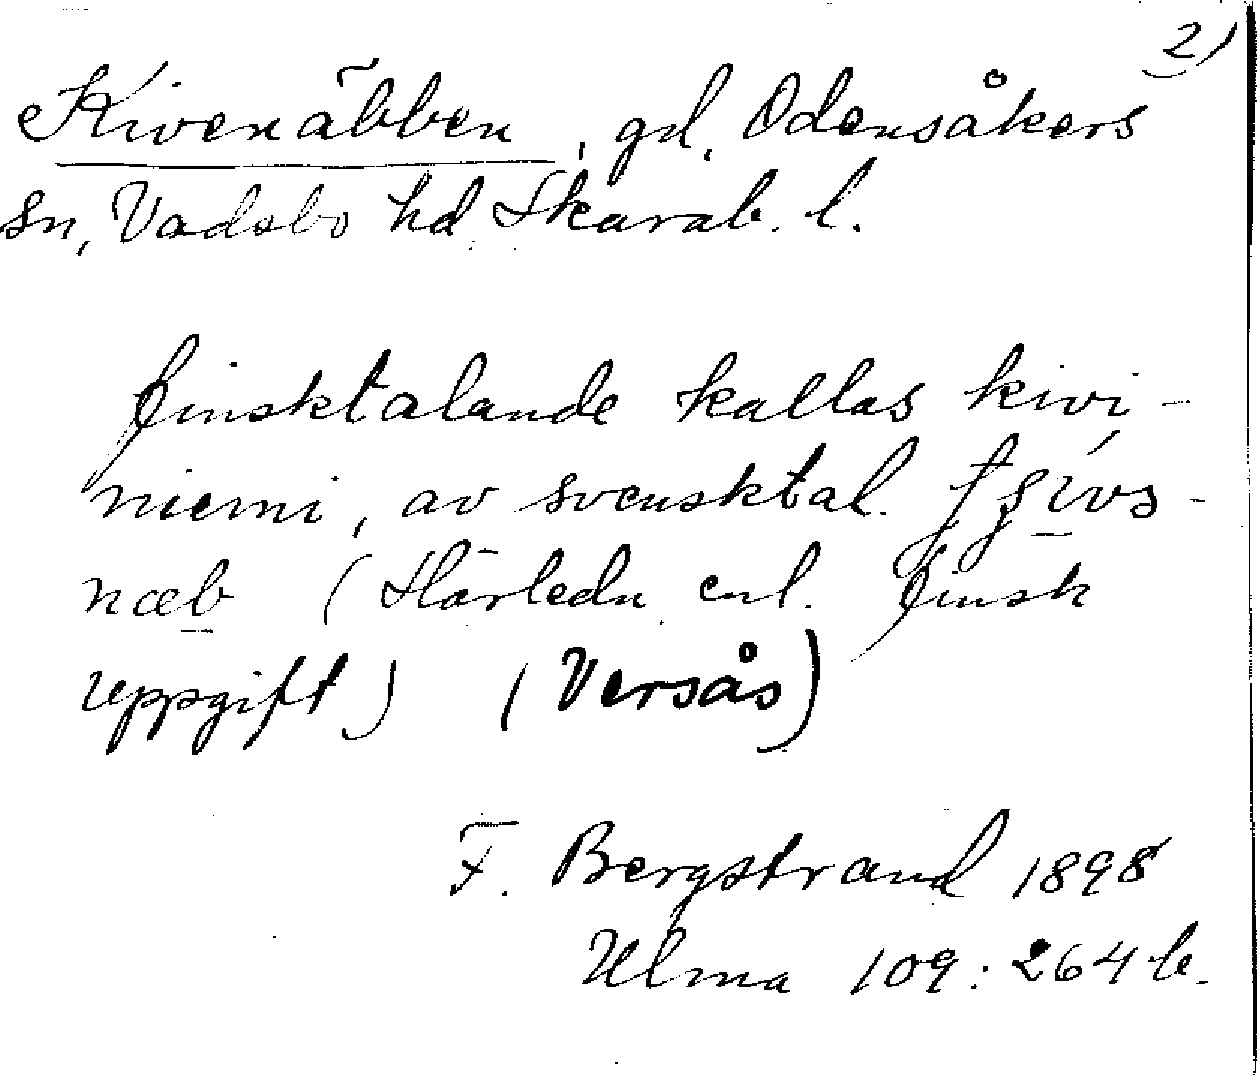 2)
Kivenäbben, gd, Odensåkers
sn, Vadsbo hd Skarab. l.
finsktalande kallas kivi-
niemi, av svensktal.
næb (Härledn enl. finsk
uppgift) (Versås)
F. Bergstrand 1898
Ulma 109: 264 b.